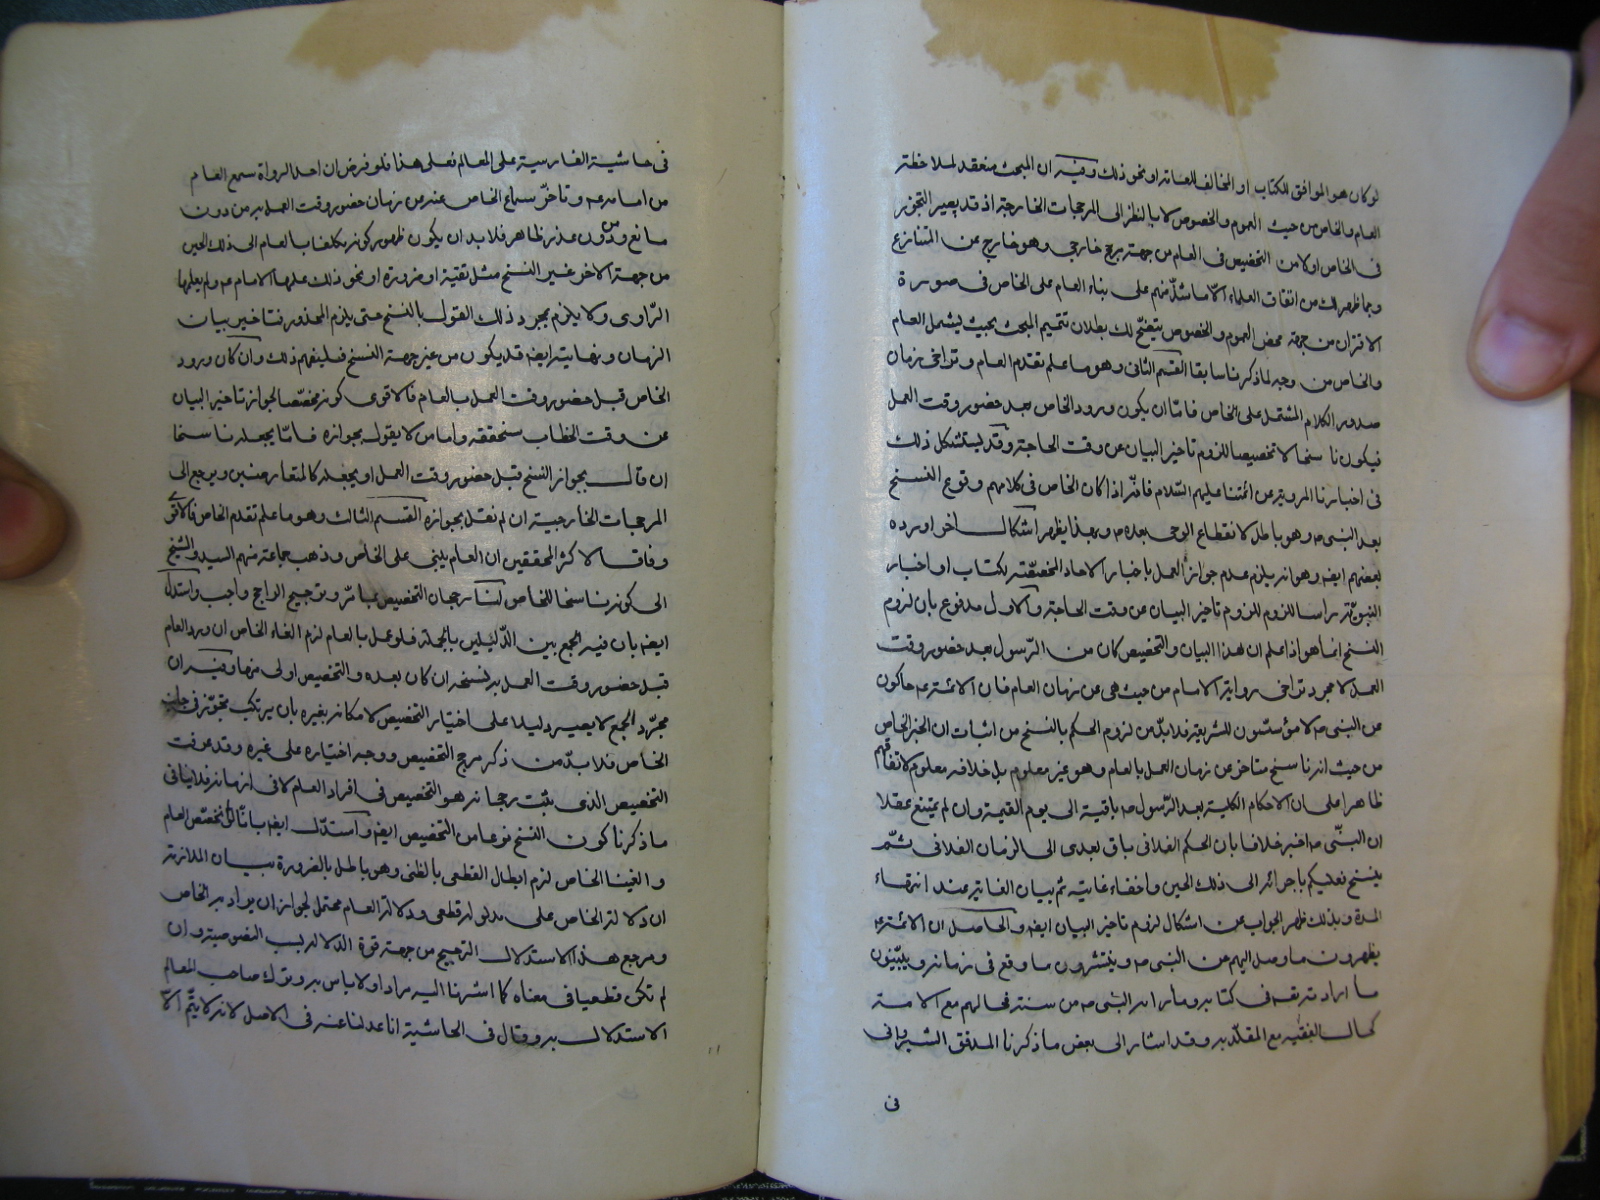 لو كان هو الموافق للكتاب او المخالف للعامة او نحو ذلك وفيه ان المبحث منعقد لملاحظة
العام والخاص من حيث العموم والخصوص لا بالنظر الى المرجحات الخارجة اذ قد يصير التجوز
فى الخاص اولى من التخصيص فى العام من جهة مرجح خارجى وهو خارج عن المتنازع
وبما ظهر لك من اتفاق العلماء الا ما شذ منهم على بناء العام على الخاص فى صورة
الاقتران من جهة محض العموم والخصوص يتضح لك بطلان تتميم المبحث بحيث يشمل العام
والخاص من وجه لما ذكرنا سابقا القسم الثانى وهو ما علم تقدم العام وتراخى زمان
صدور الكلام المشتمل على الخاص فاما ان يكون ورود الخاص بعد حضور وقت العمل
فيكون ناسخا لا تخصيصا للزوم تاخير البيان عن وقت الحاجة وقد يستشكل ذلك
فى اخبارنا المروية عن ائمتنا عليهم السلام فانه اذا كان الخاص فى كلامهم وقوع النسخ
بعد النبى ص وهو باطل لانقطاع الوحى بعده ص وبهذا يظهر اشكال اخر اورده
بعضهم ايضه وهو انه يلزم عدم جواز العمل باخبار الاحاد المخصصة للكتاب او اخبار
النبوية راسا للزوم للزوم تاخير البيان عن وقت الحاجة والاول مدفوع بان لزوم
النسخ انما هو اذا علم ان هذا البيان والتخصيص كان من الرسول بعد حضور وقت
العمل لا مجرد تراخى رواية الامام من حيث هى عن زمان العام فان الائمة ع حاكون
عن النبى ص لا مؤسسون للشريعة فلابد من لزوم الحكم بالنسخ من اثبات ان الخبر الخاص
من حيث انه ناسخ متاخر عن زمان العمل بالعام وهو غير معلوم بل خلافه معلوم لاتفاقهم
ظاهرا على ان الاحكام الكلية بعد الرسول ص باقية الى يوم القيمة وان لم يمتنع عقلا
ان النبى ص اخبر خلافا بان الحكم الفلانى باق بعدى الى الزمان الفلانى ثم
ينسخ فعليكم باجرائه الى ذلك الحين واخفاء غايته ثم بيان الغاية عند انتهاء
المدة وبذلك ظهر الجواب عن اشكال لزوم تاخير البيان ايضه والحاصل ان الائمة ع
يظهرون ما وصل اليهم من النبى ص وينتشرون ما وقع فى زمانه ويبينون
ما اراد تع فى كتابه وما اراد النبى ص من سنته فحالهم مع الامة
كحال الفقيه مع المقلد به وقد اشار الى بعض ما ذكرنا المدقق الشيروانى
فى
فى حاشية الفارسية على المعالم فعلى هذا فلو فرض ان احد الرواة سمع العام
من امام ع وتاخر سماع الخاص عنه عن زمان حضور وقت العمل به من دون
مانع ومن دون عذر ظاهر فلابد ان يكون ظهور كونه مكلفا بالعام الى ذلك الحين
من جهة الاخر غير النسخ مثل تقية او ضرورة او نحو ذلك علمها الامام ع ولم يعلمها
الراوى ولا يلزم بمجرد ذلك القول بالنسخ حتى يلزم المحذور فتاخير بيان
الزمان ونهايته ايضه قد يكون من غير جهة النسخ فليفهم ذلك وان كان ورود
الخاص قبل حضور وقت العمل بالعام فالاقوى كونه مخصصا لجواز تاخير البيان
عن وقت الخطاب سنحققه واما من لا يقول بجوازه فاما يجعله ناسخا
ان قال بجواز النسخ قبل حضور وقت العمل او يجعله كالمتعارضين ويرجع الى
المرجحات الخارجية ان لم نقل بجوازه القسم الثالث وهو ما علم تقدم الخاص فالاقوى
وفاقا لاكثر المحققين ان العام يبنى على الخاص وذهب جماعة منهم السيد والشيخ
الى كونه ناسخا للخاص لنا رجحان التخصيص بما مر وترجيح الراجح واجب واستدل
ايضه بان فيه الجمع بين الدليلين بالجملة فلو عمل بالعام لزم الغاء الخاص ان ورد العام
قبل حضور وقت العمل به ونسخه ان كان بعده والتخصيص اولى منها وفيه ان
مجرد الجمع لا يصير دليلا على اختيار التخصيص لامكانه بغيره بان يرتكب تجوز فى جانب
الخاص فلابد من ذكر مرجح التخصيص ووجه اختياره على غيره وقد عرفت
التخصيص الذى ثبت رجحانه هو التخصيص فى افراد العام لا فى ازمانه فلا ينافى
ما ذكرنا كون النسخ نوعا من التخصيص ايضه واستدل ايضه بانا لو لم نخصص العام
والغينا الخاص لزم ابطال القطعى بالظنى وهو باطل بالضرورة بيان الملازمة
ان دلالة الخاص على مدلوله قطعى ودلالة العام محتمل لجواز ان يراد به الخاص
ومرجع هذا الاستدلال الترجيح من جهة قوة الدلالة بسبب النصوصية وان
لم تكن قطعيا فى معناه كما اشرنا اليه مرارا ولا باس به وترك صاحب المعالم
الاستدلال به وقال فى الحاشية انا عدلنا عنه فى الاصل لانه لا يتم الا